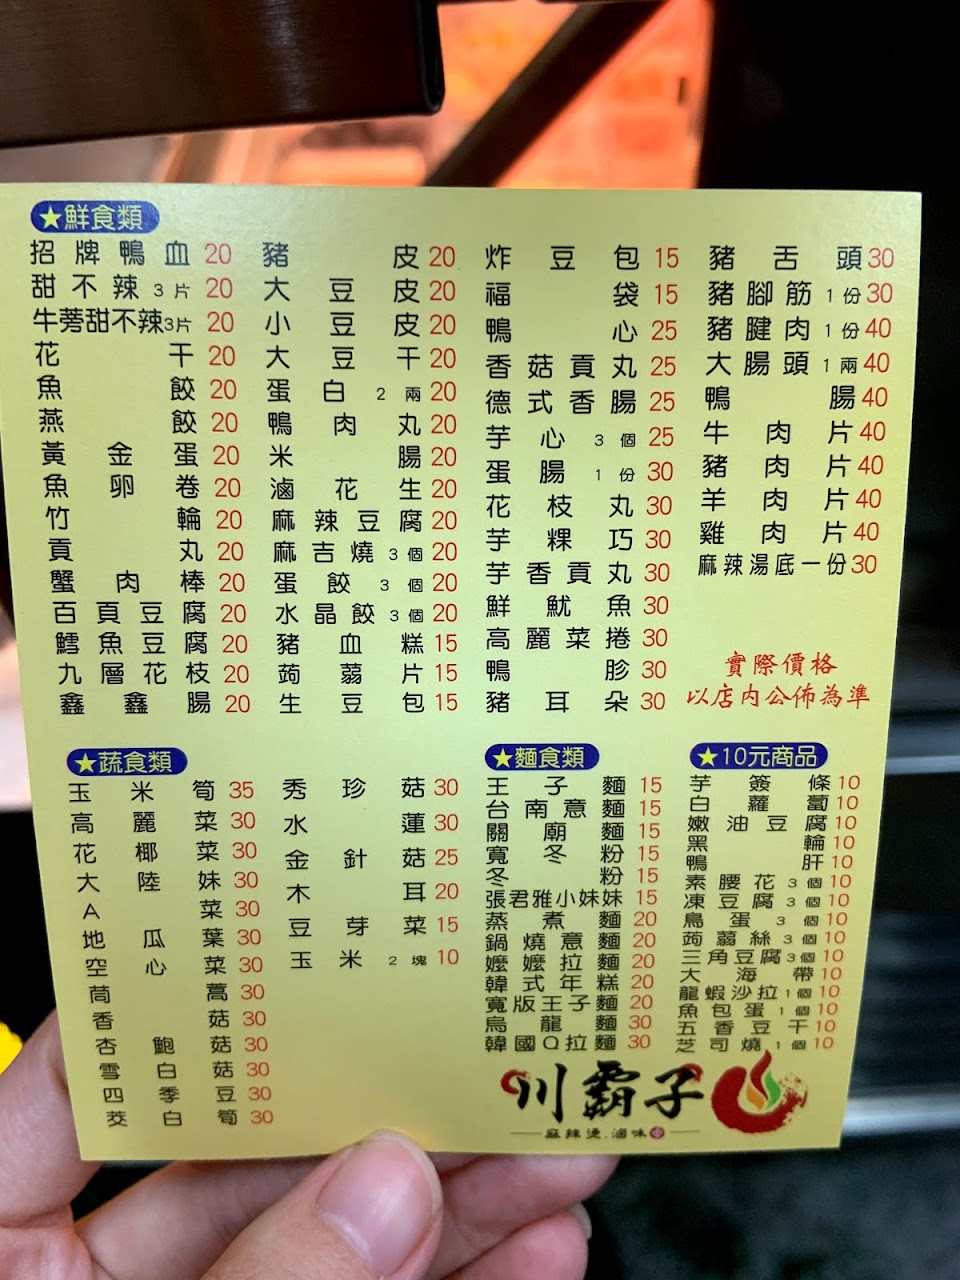 ★鮮食類
招牌鴨血 20
甜不辣 3片 20
牛蒡甜不辣3片 20
花干 20
魚餃 20
燕餃 20
黃金蛋 20
魚卵卷 20
竹輪 20
貢丸 20
蟹肉棒 20
百頁豆腐 20
鱈魚豆腐 20
九層花枝 20
鑫鑫腸 20
豬皮 20
大豆皮 20
小豆皮 20
大豆干 20
蛋白 2兩 20
鴨肉丸 20
米腸 20
滷花生 20
麻辣豆腐 20
麻吉燒 3個 20
蛋餃 3個 20
水晶餃 3個 20
豬血糕 15
蒟蒻片 15
生豆包 15
炸豆包 15
福袋 15
鴨心 25
香菇貢丸 25
德式香腸 25
芋心 3個 25
蛋腸 1份 30
花枝丸 30
芋粿巧 30
芋香貢丸 30
鮮魷魚 30
高麗菜捲 30
鴨胗 30
豬耳朵 30
豬舌頭 30
豬腳筋 1份 30
豬腱肉 1份 40
大腸頭 1兩 40
鴨腸 40
牛肉片 40
豬肉片 40
羊肉片 40
雞肉片 40
麻辣湯底一份 30
實際價格
以店內公佈為準
★蔬食類
玉米筍 35
高麗菜 30
花椰菜 30
大陸妹 30
A菜 30
地瓜葉 30
空心菜 30
茼蒿 30
香菇 30
杏鮑菇 30
雪白菇 30
四季豆 30
茭白筍 30
秀珍菇 30
水蓮 30
金針菇 25
木耳 20
豆芽菜 15
玉米 2塊 10
★麵食類
王子麵 15
台南意麵 15
關廟麵 15
寬冬粉 15
冬粉 15
張君雅小妹妹 15
蒸煮麵 20
鍋燒意麵 20
嬤嬤拉麵 20
韓式年糕 20
寬版王子麵 20
烏龍麵 30
韓國Q拉麵 30
★10元商品
芋簽條 10
白蘿蔔 10
嫩油豆腐 10
黑輪 10
鴨肝 10
素腰花 3個 10
凍豆腐 3個 10
鳥蛋 3個 10
蒟蒻絲 3個 10
三角豆腐 3個 10
大海帶 10
龍蝦沙拉 1個 10
魚包蛋 1個 10
五香豆干 10
芝司燒 1個 10
川霸子
麻辣燙.滷味